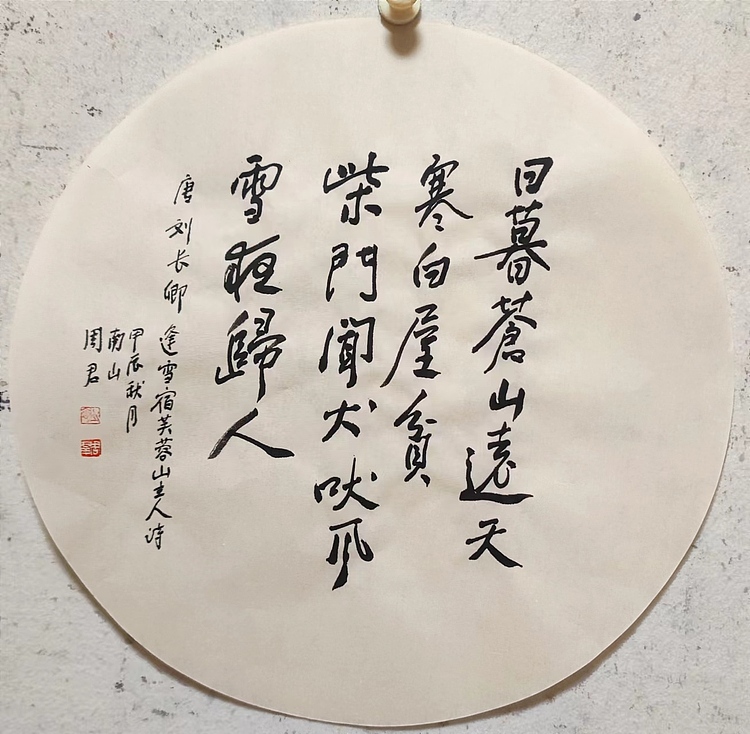 日暮蒼山遠天
寒白屋貧
柴門聞犬吠风
雪夜歸人
唐刘长卿逢雪宿芙蓉山主人诗
甲辰秋月
南山
周君